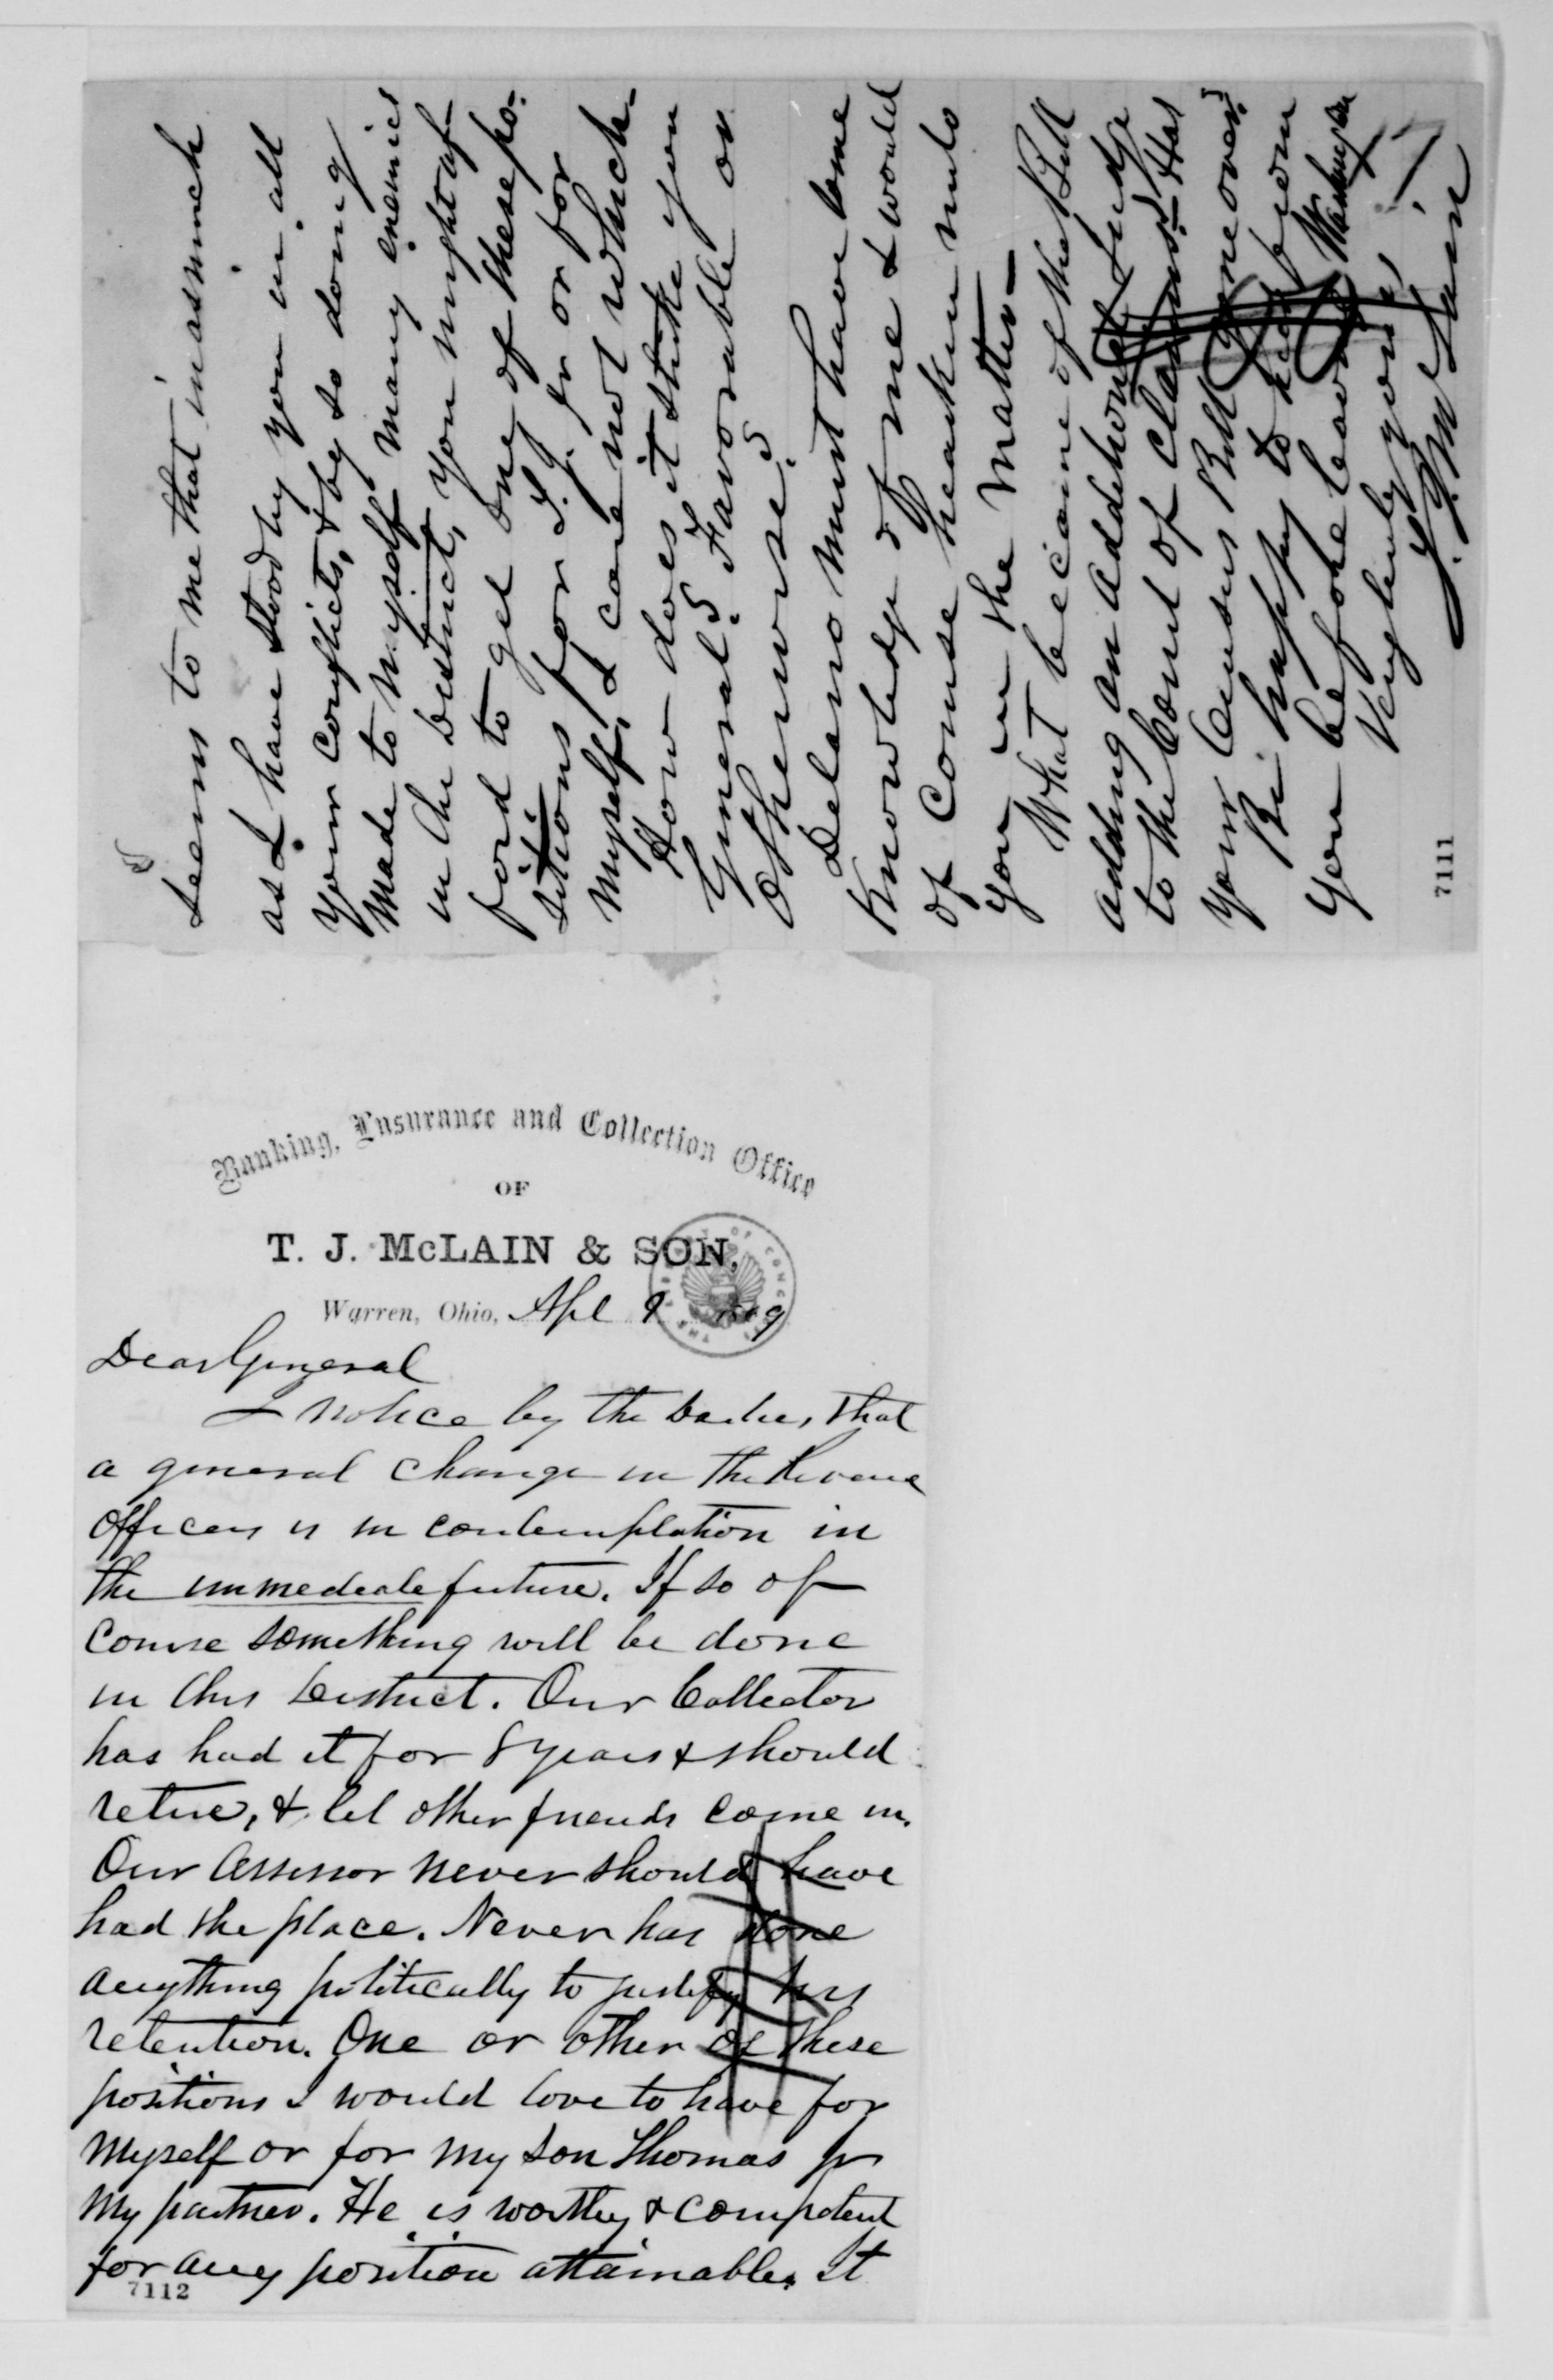 Banking, Insurance and Collection Office
OF
T. J. McLAIN & SON,
Warren, Ohio, Apl 9 1869
Dear General
I notice by the Dailies, that
a general change in the Revenue
officers is in contemplation in
the immediate future. If so of
course something will be done
in this District. Our Collector
has had it for 8 years & should
retire, & let other friends come in.
Our Assessor never should have
had the place. Never has done
anything politically to justify his
retention. One or other of these
positions I would love to have for
myself or for my son Thomas jr
my partner. He is worthy & competent
for any position attainable. It
7112
seems to me that inasmuch
as I have stood by you in all
your conflicts, & by so doing
made to myself many enemies
in the District, you might af-
ford to get one of these po-
sitions for T. J. Jr or for
myself, I care not which-
How does it strike you
General? Favorable or
otherwise?
Delano must have some
knowledge of me & would
of course hearken unto
you in the matter-
What became of the Bill
adding an additional Judge
to the Court of Claims- Has
your Census Bill gone over?
Be happy to hear from
you before leaving Washington
Very truly yours
T. J. McLain
7111